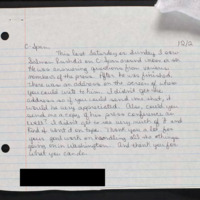 C-Span 10/2
This last Saturday or Sunday I saw
Salman Rushdie on C-Span around when
he was answering questions from various
members of the press. After he was finished,
there was an address on the screen of where
you could write to him. I didn't get the
address so if you could send me that, it
would be very appreciated. Also, could you
send me a copy of his press conference as
well? I didn't get to see very much of it and
I'd want it on tape. Thank you a lot for
your good work on handling all the things
going on in Washington. And thank you for
what you can do.